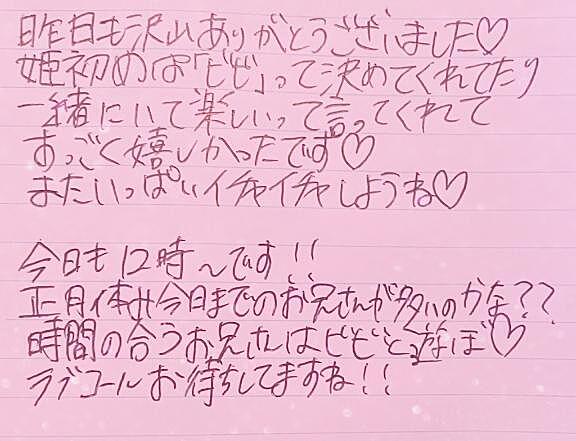 昨日も沢山ありがとうございました♡
姫初めは「ビビ」って決めてくれてたり
一緒にいて楽しいって言ってくれて
すっごく嬉しかったです♡
またいっぱいイチャイチャしようね♡
今日も12時〜です!!
正月休み今日までのお兄さんが多いのかな??
時間の合うお兄さんはビビと遊ぼ♡
ラブコールお待ちしてますね!!